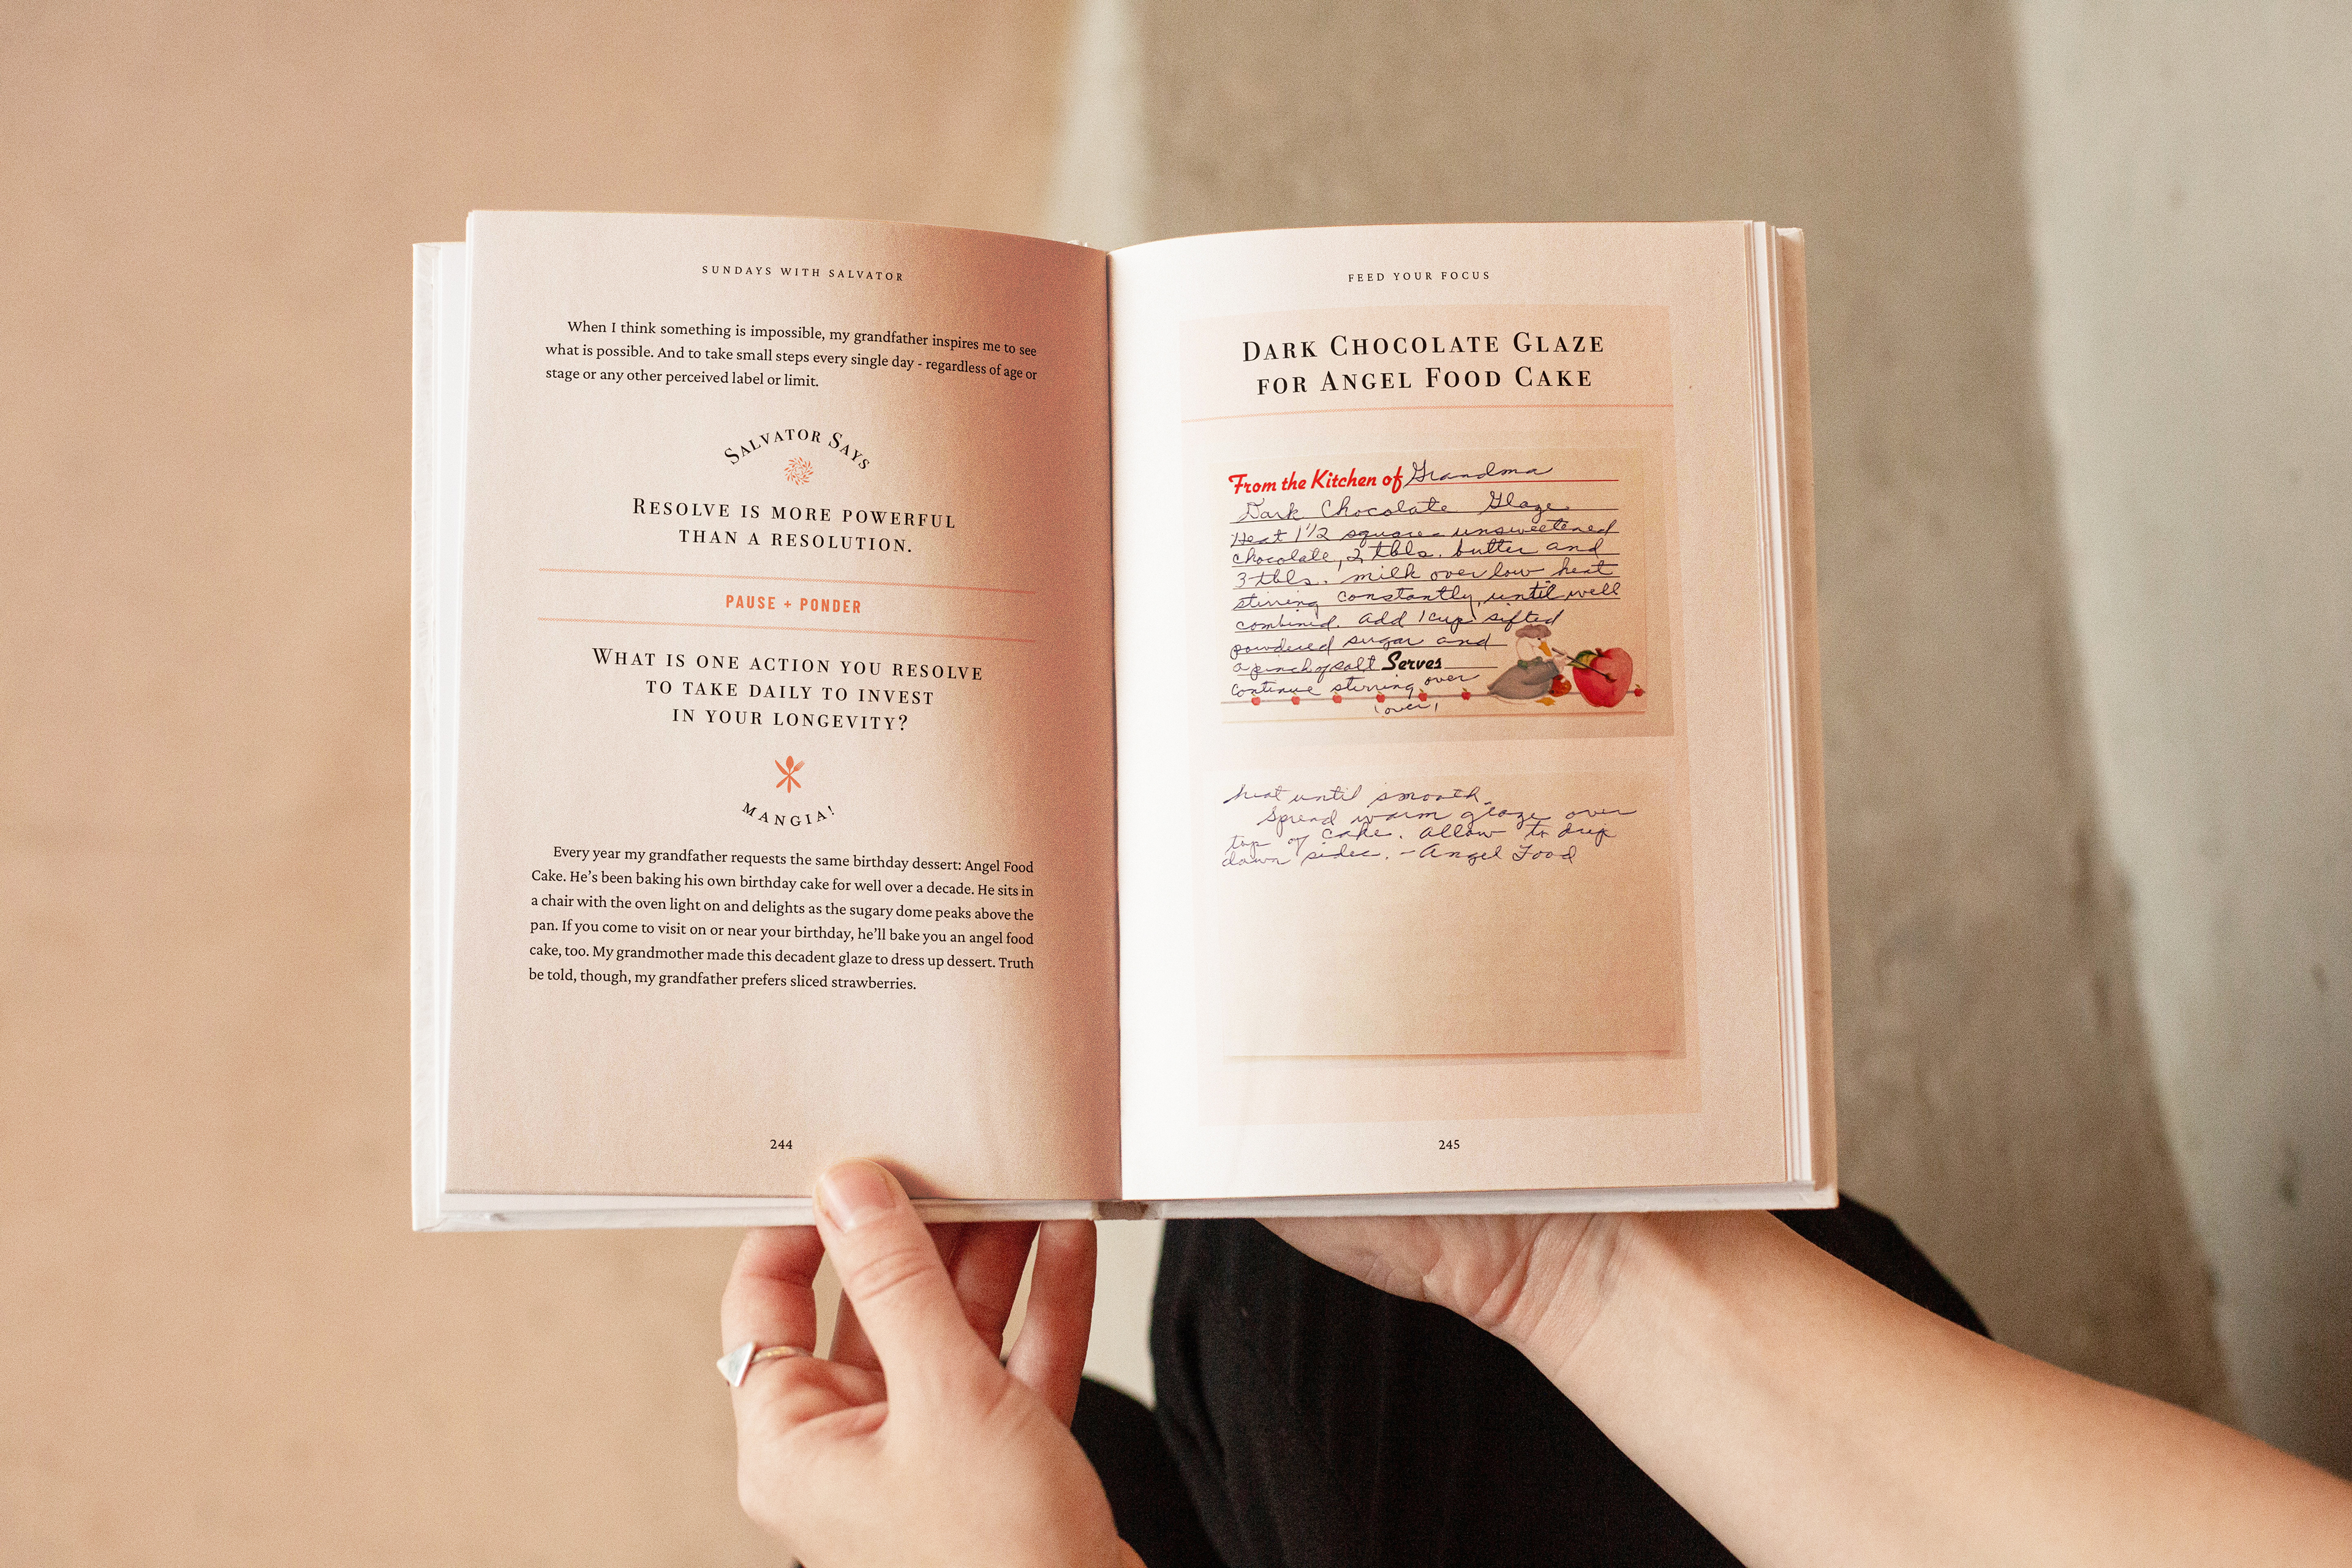 SUNDAYS WITH SALVATOR
When I think something is impossible, my grandfather inspires me to see
what is possible. And to take small steps every single day - regardless of age or
stage or any other perceived label or limit.
SALVATOR SAYS
RESOLVE IS MORE POWERFUL
THAN A RESOLUTION.
PAUSE + PONDER
WHAT IS ONE ACTION YOU RESOLVE
TO TAKE DAILY TO INVEST
IN YOUR LONGEVITY?
MANGIA!
Every year my grandfather requests the same birthday dessert: Angel Food
Cake. He's been baking his own birthday cake for well over a decade. He sits in
a chair with the oven light on and delights as the sugary dome peaks above the
pan. If you come to visit on or near your birthday, he'll bake you an angel food
cake, too. My grandmother made this decadent glaze to dress up dessert. Truth
be told, though, my grandfather prefers sliced strawberries.
244
FEED YOUR FOCUS
DARK CHOCOLATE GLAZE
FOR ANGEL FOOD CAKE
From the Kitchen of Grandma
Dark Chocolate Glaze
Heat 1 1/2 squares unsweetened
chocolate, 2 tbls. butter and
3 tbls. milk over low heat
stirring constantly, until well
combined. Add 1 cup sifted
powdered sugar and
a pinch of salt Serves
Continue stirring over
(over)
heat until smooth.
Spread warm glaze over
top of cake. Allow to drip
down sides. - Angel Food
245